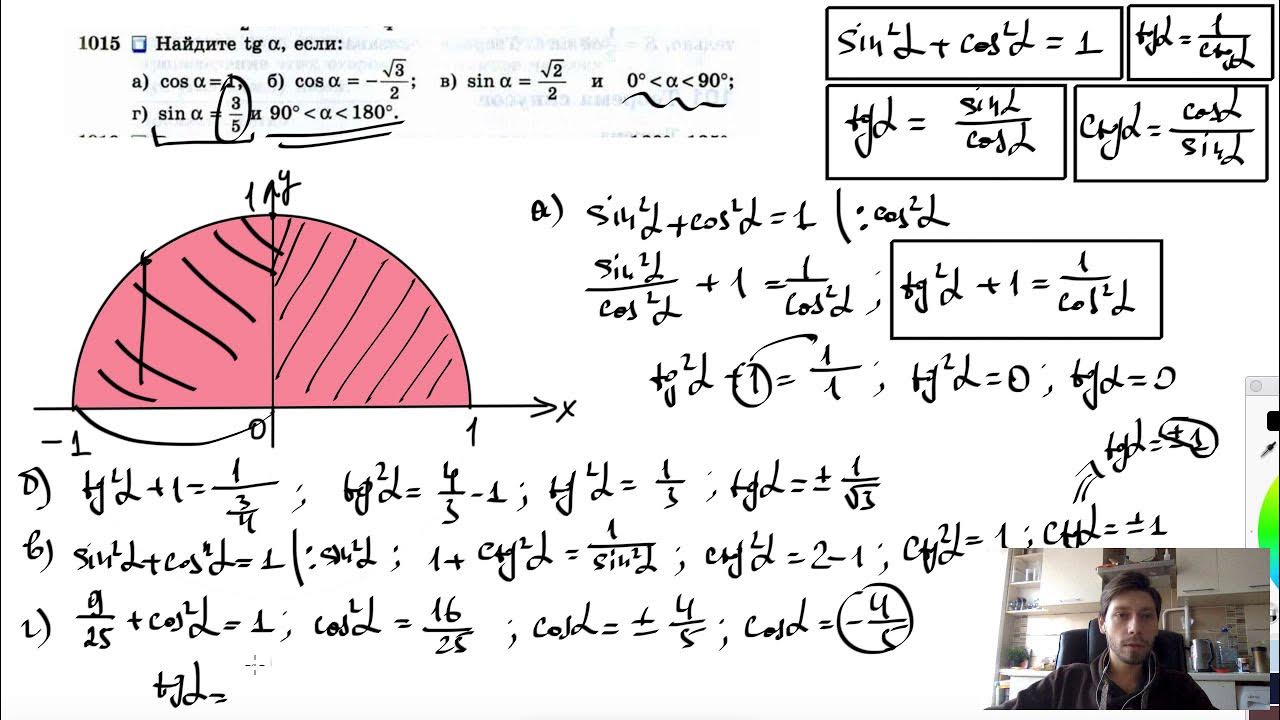 1015 Найдите tg α, если:
а) cos α = 1; б) cos α = −√3/2; в) sin α = √2/2 и 0° < α < 90°;
г) sin α = 3/5 и 90° < α < 180°.
sin²α + cos²α = 1
tgα = 1/ctgα
tgα = sinα/cosα
ctgα = cosα/sinα
1 y
−1 0 1 x
а) sin²α + cos²α = 1 |: cos²α
sin²α/cos²α + 1 = 1/cos²α ; tg²α + 1 = 1/cos²α
tg²α + 1 = 1/1 ; tg²α = 0 ; tgα = 0
tgα = ±1
б) tg²α + 1 = 1/(3/4) ; tg²α = 4/3 − 1 ; tg²α = 1/3 ; tgα = ± 1/√3
в) sin²α + cos²α = 1 |: sin²α ; 1 + ctg²α = 1/sin²α ; ctg²α = 2−1 ; ctg²α = 1 ; ctgα = ±1
г) 9/25 + cos²α = 1 ; cos²α = 16/25 ; cosα = ± 4/5 ; cosα = −4/5
tgα =